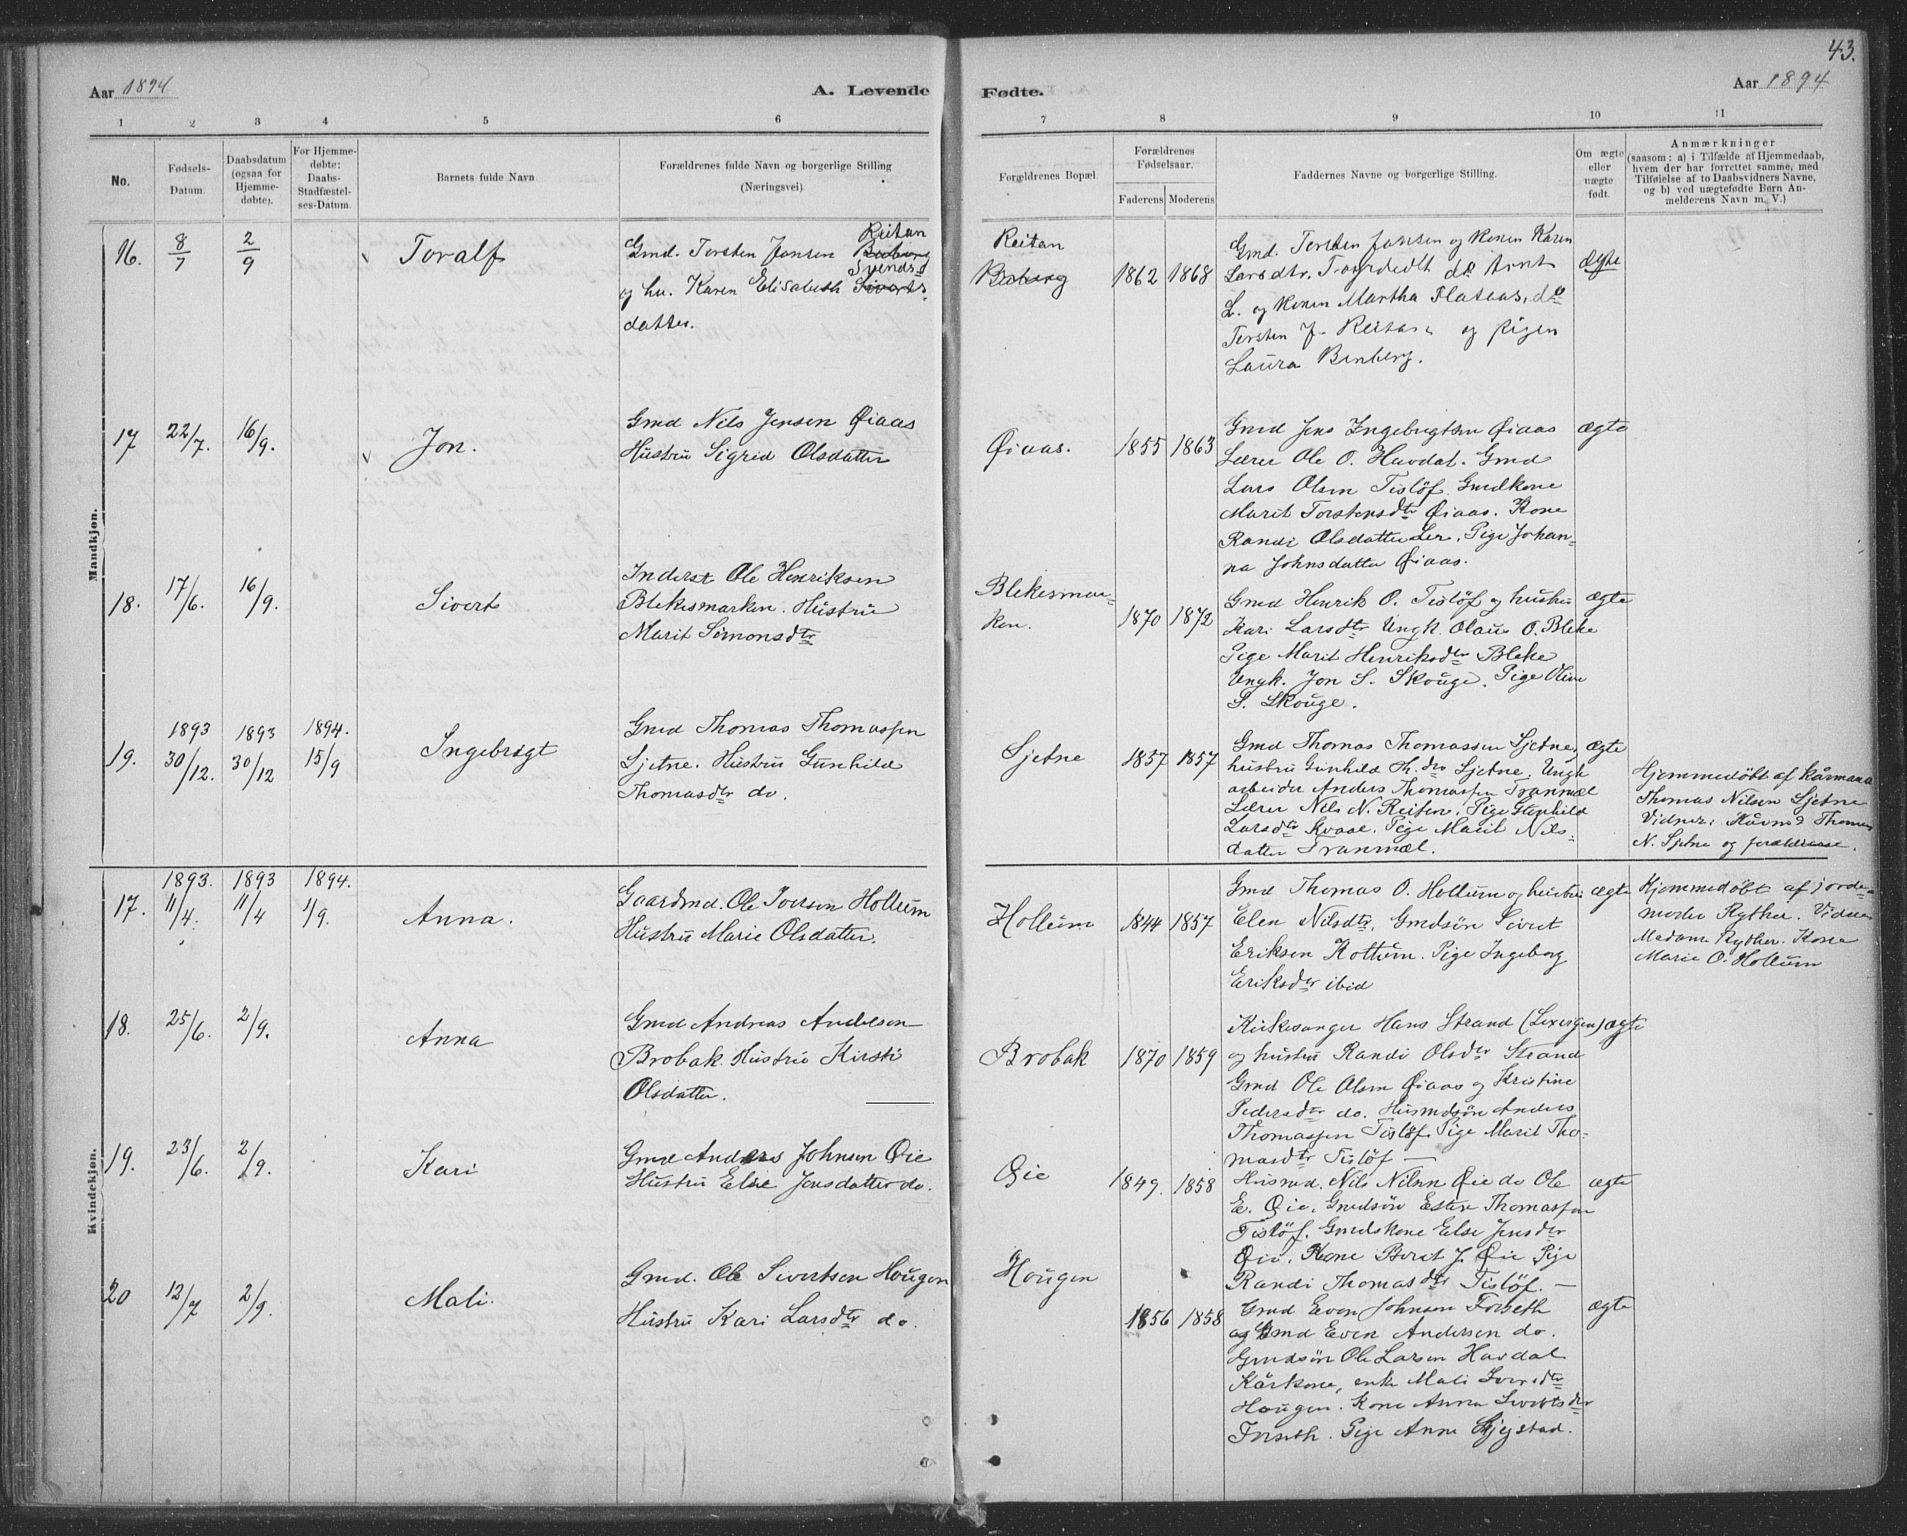 43.
Aar 1894
A. Levende
Fødte.
Aar 1894
1 2 3 4 5 6 7 8 9 10 11
No.
Fødsels-Datum.
Daabsdatum (ogsaa for Hjemme-døbte).
For Hjemme-døbte: Daabs-Stadfæstel-ses-Datum.
Barnets fulde Navn
Forældrenes fulde Navn og borgerlige Stilling (Næringsvei).
Forældrenes Bopæl.
Forældrenes Fødselsaar.
Faderens Moderens
Faddernes Navne og borgerlige Stilling.
Om ægte eller uægte født.
Anmærkninger
(saasom: a) i Tilfælde af Hjemmedaab,
hvem der har forrettet samme, med
Tilføielse af to Daabsvidners Navne,
og b) ved uægtefødte Børn An-
melderens Navn m. V.)
Mandkjøn.
16. 8/7 2/9 Toralf
Reitan
Gmd. Torsten Jonsen
Svends
og hu. Karen Elisabeth Siverts-
datter.
Reitan
1862 1868
Gmd. Torsten Jonsen og Konen Karen
Larsdtr. do Arnt
L. og Konen Martha Flataas, do
Torsten J. Reitan og pigen
Laura Benberg.
ægte
17 22/7. 16/9. Jon.
Gmd Nils Jensen Øiaas
Hustru Sigrid Olsdatter
Øiaas. 1855 1863
Gmd Jens Ingebrigtsen Øiaas
Lærer Ole O. Havdal. Gmd
Lars Olsen Tisløf. Gmdkone
Marit Torstensdtr Øiaas. Kone
Randi Olsdatter Ler. Pige Johan-
na Johnsdatter Øiaas.
ægte
18. 17/6. 16/9. Sivert
Inderst Ole Henriksen
Blekesmarken. Hustru
Marit Simonsdtr
Blekesmar-
ken. 1870 1872
Gmd Henrik O. Tisløf og hustru
Kari Larsdtr Ungk. Olaus O. Bleke
Pige Marit Henriksdtr Bleke
Ungk. Jon S. Skouge. Pige Oline
S. Skouge.
ægte
19. 1893 30/12. 1893 30/12 1894. 15/9 Ingebrigt
Gmd Thomas Thomassen
Sjetne. Hustru Gunhild
Thomasdtr do.
Sjetne 1857 1857
Gmd Thomas Thomassen Sjetne,
hustru Gunhild Th.dtr Sjetne. Ungk
arbeider Anders Thomassen Tranmæl
Lærer Nils N. Reiten. Pige
Larsdtr Kvaal. Pige Marit Nils-
datter Tranmæl.
ægte
Hjemmedøbt af kårmand
Thomas Nilsen Sjetne
Vidner: Thomas
N. Sjetne og forældrene.
Kvindekjøn.
17. 1893. 11/4. 1893 11/4 1894. 1/9. Anna.
Gaardmd. Ole Iversen Hollum
Hustru Marie Olsdatter.
Hollum 1844 1857
Gmd Thomas O. Hollum og hustru
Elen Nilsdtr. Gmdsøn Sivert
Eriksen Hollum. Pige Ingeborg
Eriksdtr ibid
ægte
Hjemmedøbt af jorde-
moder Ryther. Vidner
Madam Ryther. Kone
Marie O. Hollum
18. 25/6. 2/9. Anna
Gmd Andreas Andersen
Brobak. Hustru Kirsti
Olsdatter.
Brobak 1870 1859
Kirkesanger Hans Strand
og hustru Randi Olsdtr Strand
Gmd Ole Olsen Øiaas og Kristine
Pedersdtr do. Husmdsøn Anders
Thomassen Tisløf. Pige Marit Tho-
masdtr Tisløf —
ægte
19. 23/6. 2/9. Kari
Gmd Anders Johnsen Øie
Hustru Else Jensdatter do.
Øie 1849. 1858
Husmd. Nils Nilsen Øie do Ole
E. Øie. Gmdsøn Thomassen
Tisløf. Gmdskone Else Jensdtr
Øie. Kone Beret J. Øie Pige
Randi Thomasdtr Tisløf. —
ægte
20 12/7 2/9. Mali.
Gmd. Ole Sivertsen Hougen
Hustru Kari Larsdtr do.
Hougen 1856 1858
Gmd Even Johnsen Forseth
og Gmd Even Andersen do.
Gmdsøn Ole Larsen Havdal
Kårkone, enke Mali
Hougen. Kone Anna Sivertsdtr
Forseth. Pige Anne
ægte